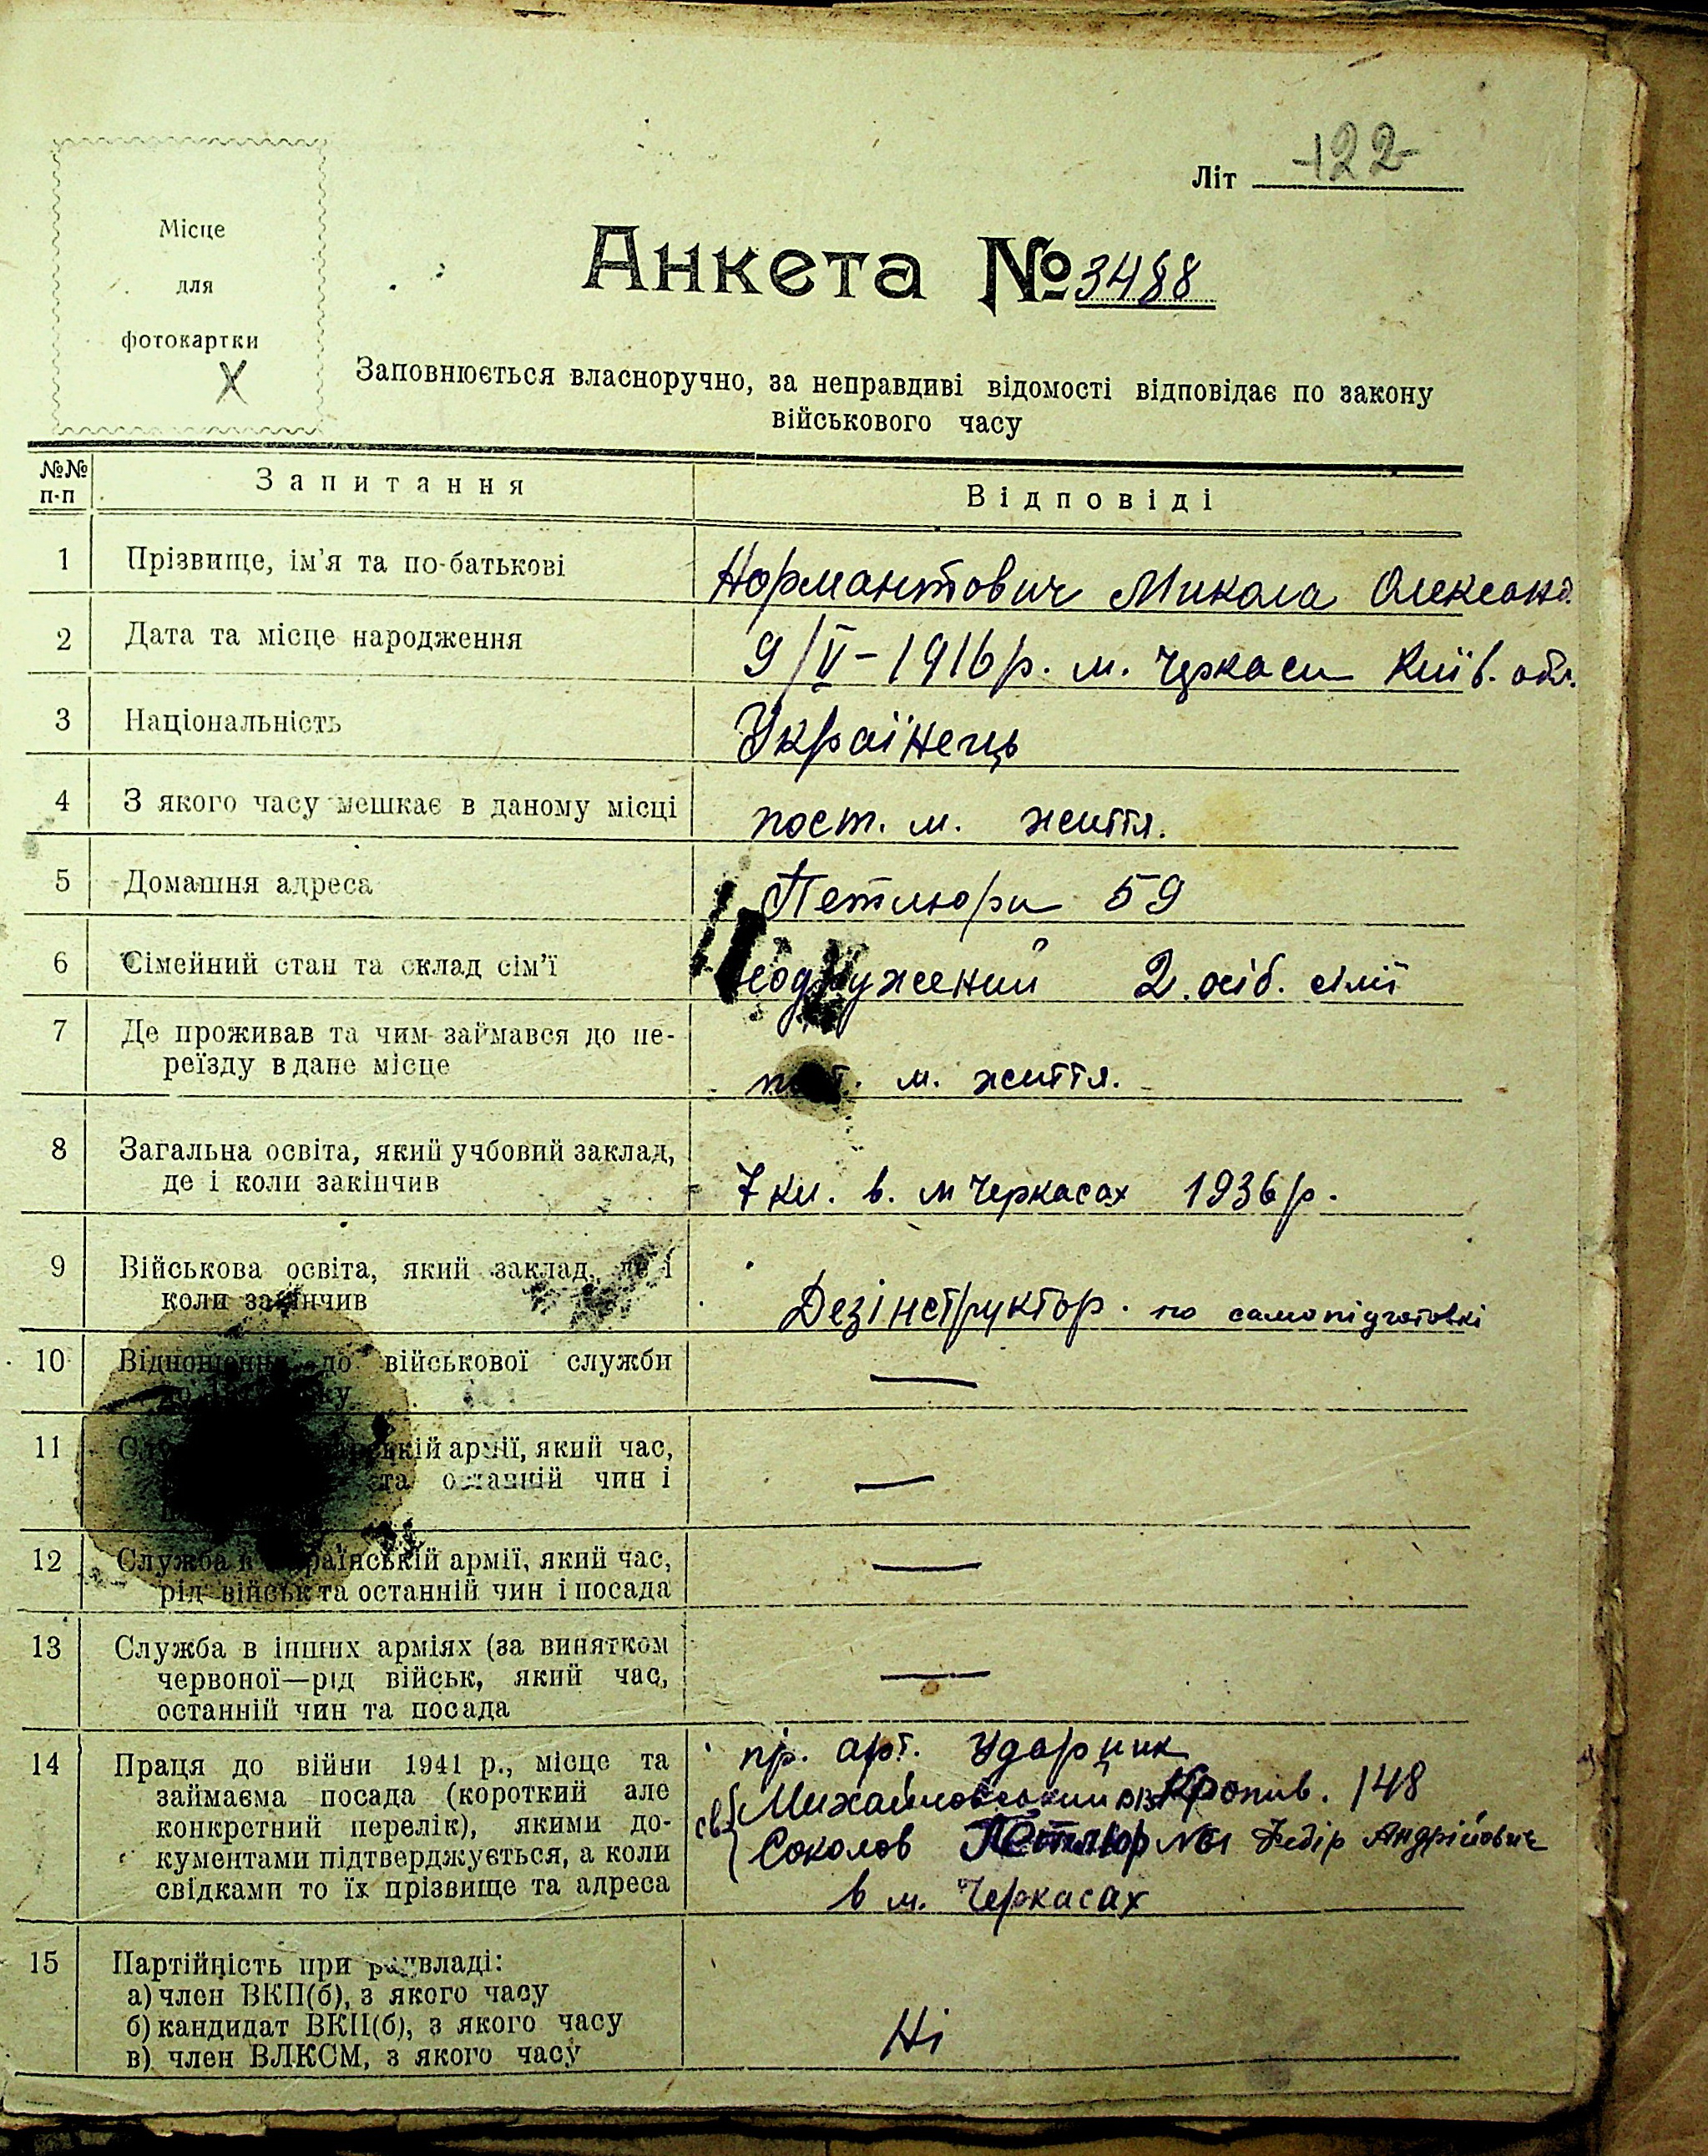 Літ 122
Місце
для
фотокартки
Анкета № 3488
Заповнюється власноручно, за неправдиві відомості відповідає по закону
військового часу
№№ п-п Запитання Відповіді
1 Прізвище, ім'я та по-батькові Нормантович Микола Олександ.
2 Дата та місце народження 9/V-1916 р. м. Черкаси Київ. обл.
3 Національність Українець
4 З якого часу мешкає в даному місці пост. м. життя.
5 Домашня адреса Петлюри 59
6 Сімейний стан та склад сім'ї одружений 2. осіб. сімї
7 Де проживав та чим займався до пе-
реїзду в дане місце
м. життя.
8 Загальна освіта, який учбовий заклад,
де і коли закінчив
7 кл. в. м Черкасах 1936 р.
9 Військова освіта, який заклад, де і
коли закінчив
Дезінструктор. по самопідготовкі
10 Відношення до військової служби —
11 армії, який час,
та останній чин і —
12 Служба в Українській армії, який час,
рід військ та останній чин і посада
—
13 Служба в інших арміях (за винятком
червоної—рід військ, який час,
останній чин та посада
—
14 Праця до війни 1941 р., місце та
займаєма посада (короткий але
конкретний перелік), якими до-
кументами підтверджується, а коли
свідками то їх прізвище та адреса
пр. арт. Ударник
св. Михайловський Кропив. 148
Соколов Петлюр Федір Андрійович
в м. Черкасах
15 Партійність при радвладі:
а) член ВКП(б), з якого часу
б) кандидат ВКП(б), з якого часу
в) член ВЛКСМ, з якого часу
Ні